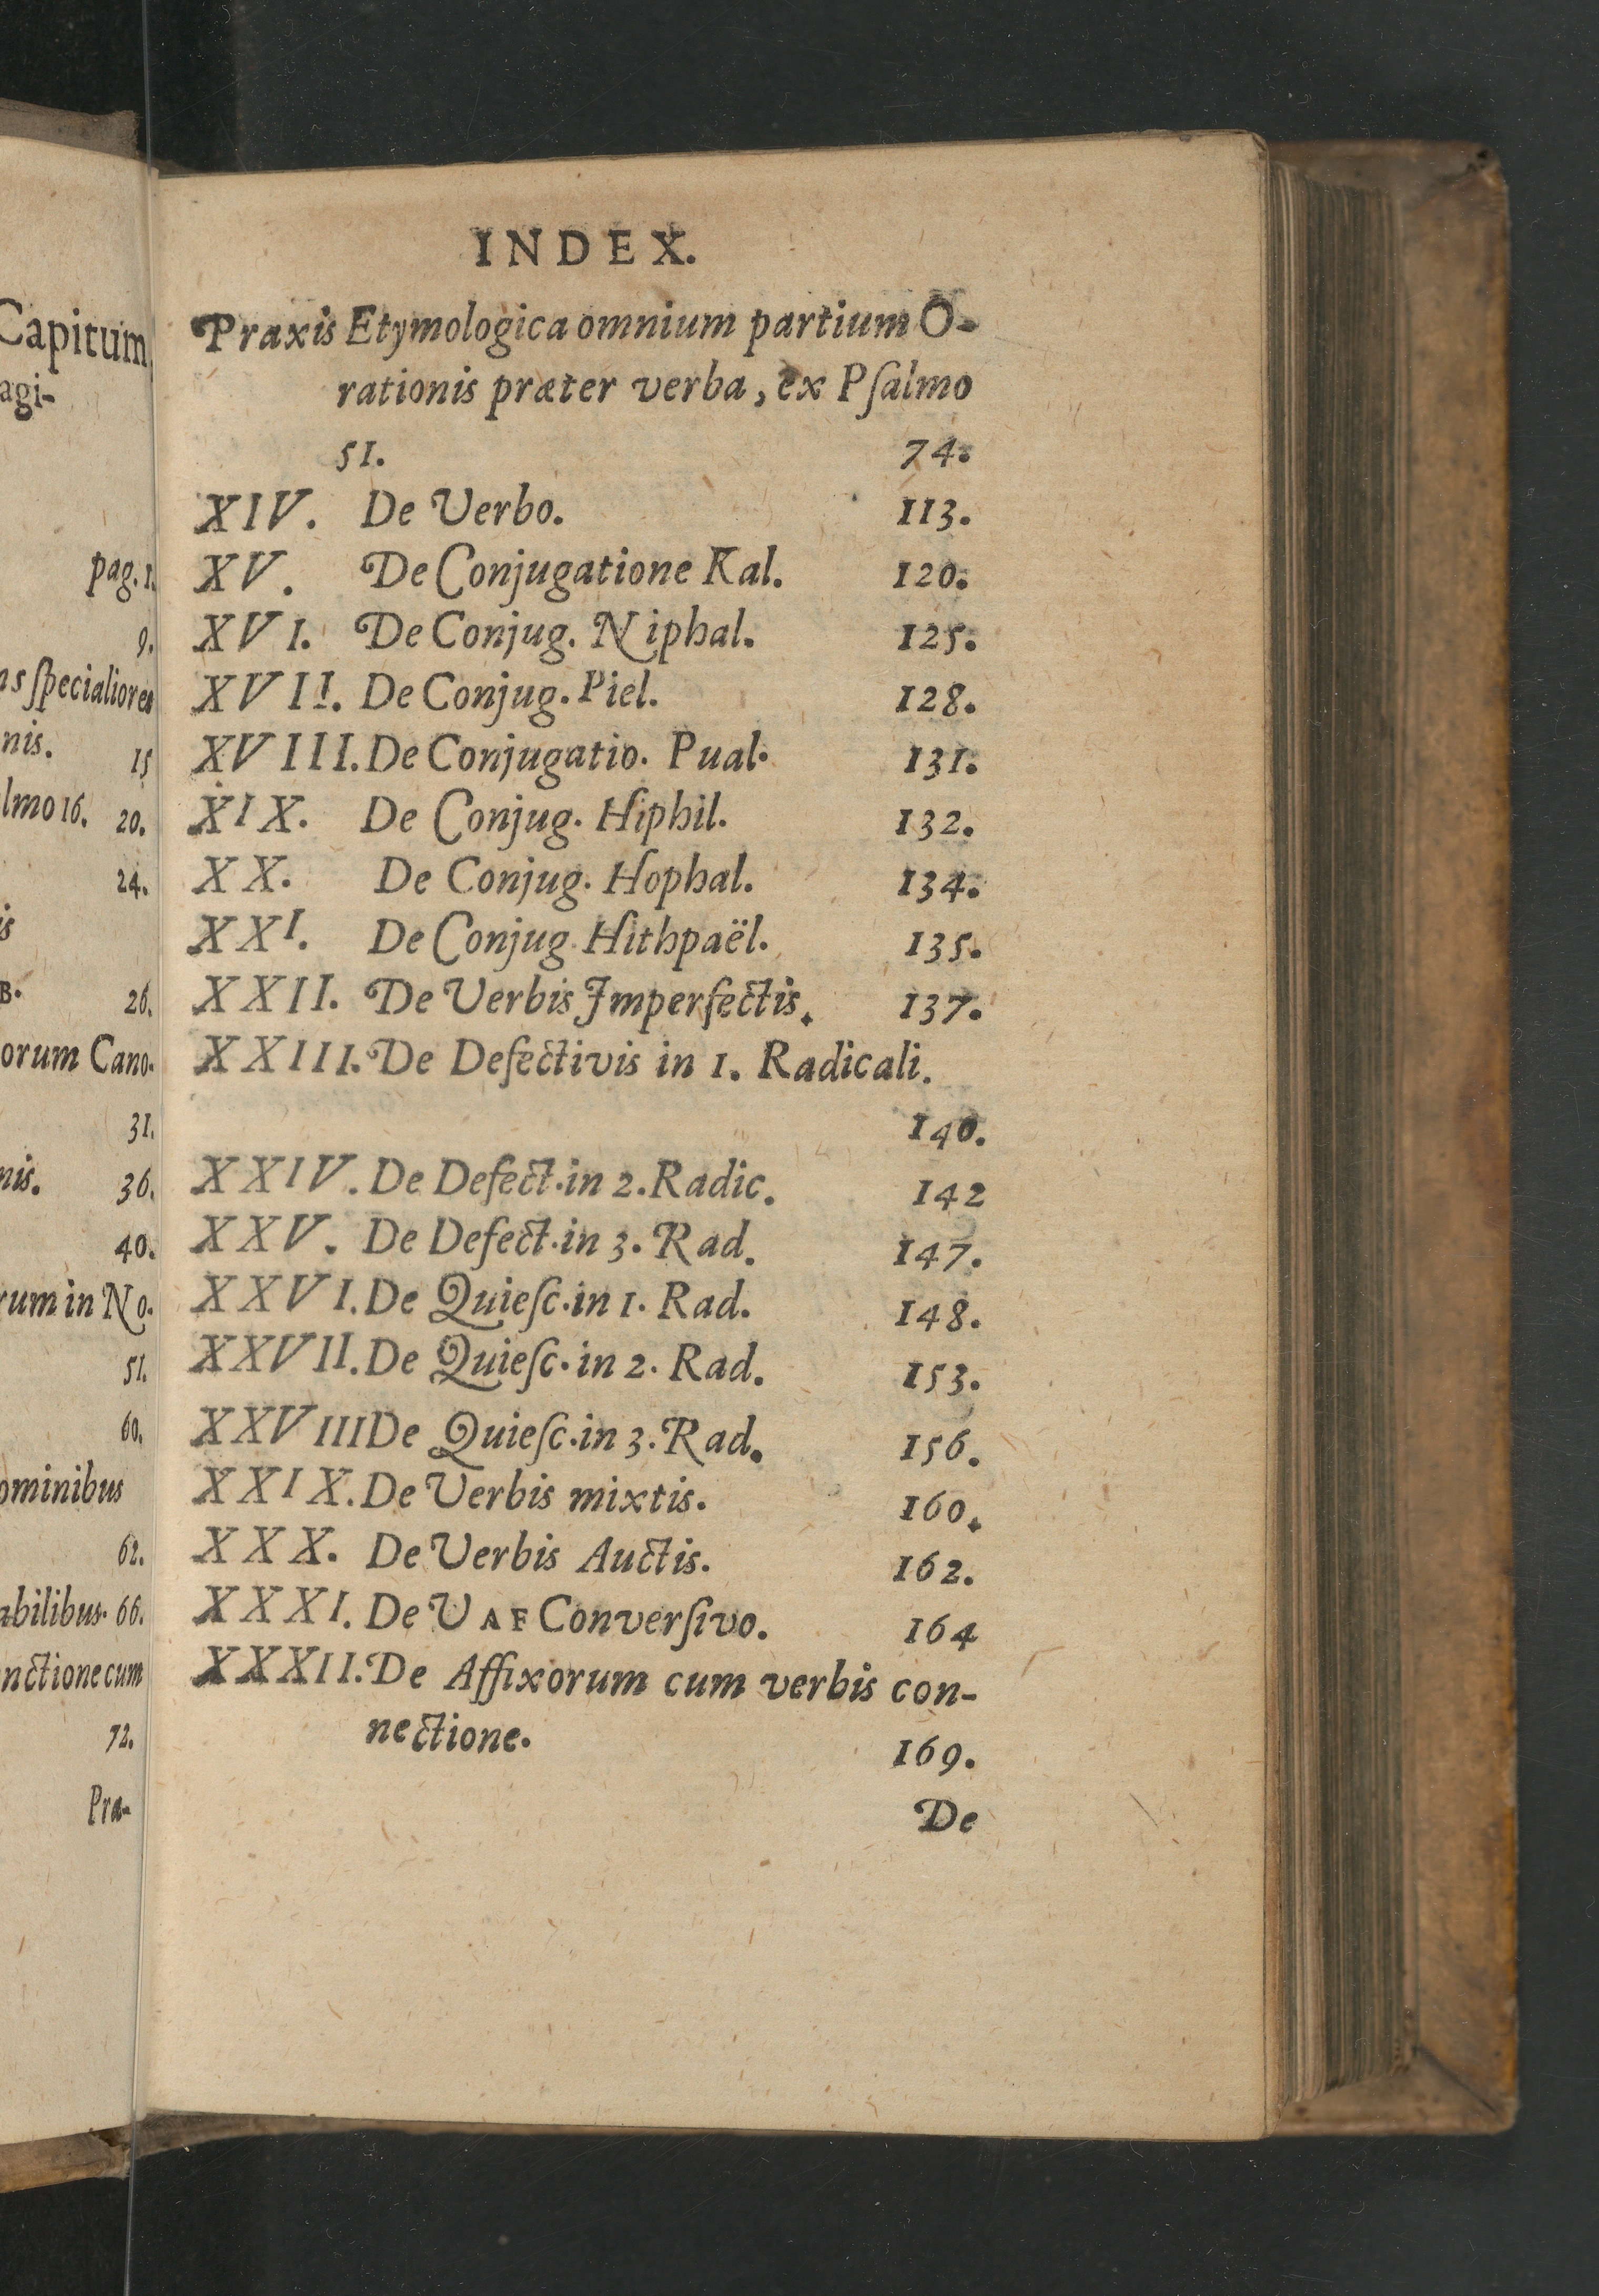 Capitum
agi-
pag. 1.
9.
ns ſpecialiores
nis. 15
lmo 16. 20.
24.
is
B. 26.
orum Cano-
31.
nis. 36.
40.
rum in No-
51.
60.
ominibus
62.
abilibus. 66.
nctione cum
72.
Pra-
INDEX.
Praxis Etymologica omnium partium O-
rationis præter verba, ex Pſalmo
51. 74.
XIV. De Verbo. 113.
XV. De Conjugatione Kal. 120.
XVI. De Conjug. Niphal. 125.
XVII. De Conjug. Piel. 128.
XVIII. De Conjugatio. Pual. 131.
XIX. De Conjug. Hiphil. 132.
XX. De Conjug. Hophal. 134.
XXI. De Conjug. Hithpaël. 135.
XXII. De Verbis Imperfectis. 137.
XXIII. De Defectivis in 1. Radicali.
140.
XXIV. De Defect. in 2. Radic. 142
XXV. De Defect. in 3. Rad. 147.
XXVI. De Quieſc. in 1. Rad. 148.
XXVII. De Quieſc. in 2. Rad. 153.
XXVIII De Quieſc. in 3. Rad. 156.
XXIX. De Verbis mixtis. 160.
XXX. De Verbis Auctis. 162.
XXXI. De VAF Converſivo. 164
XXXII. De Affixorum cum verbis con-
nectione. 169.
De